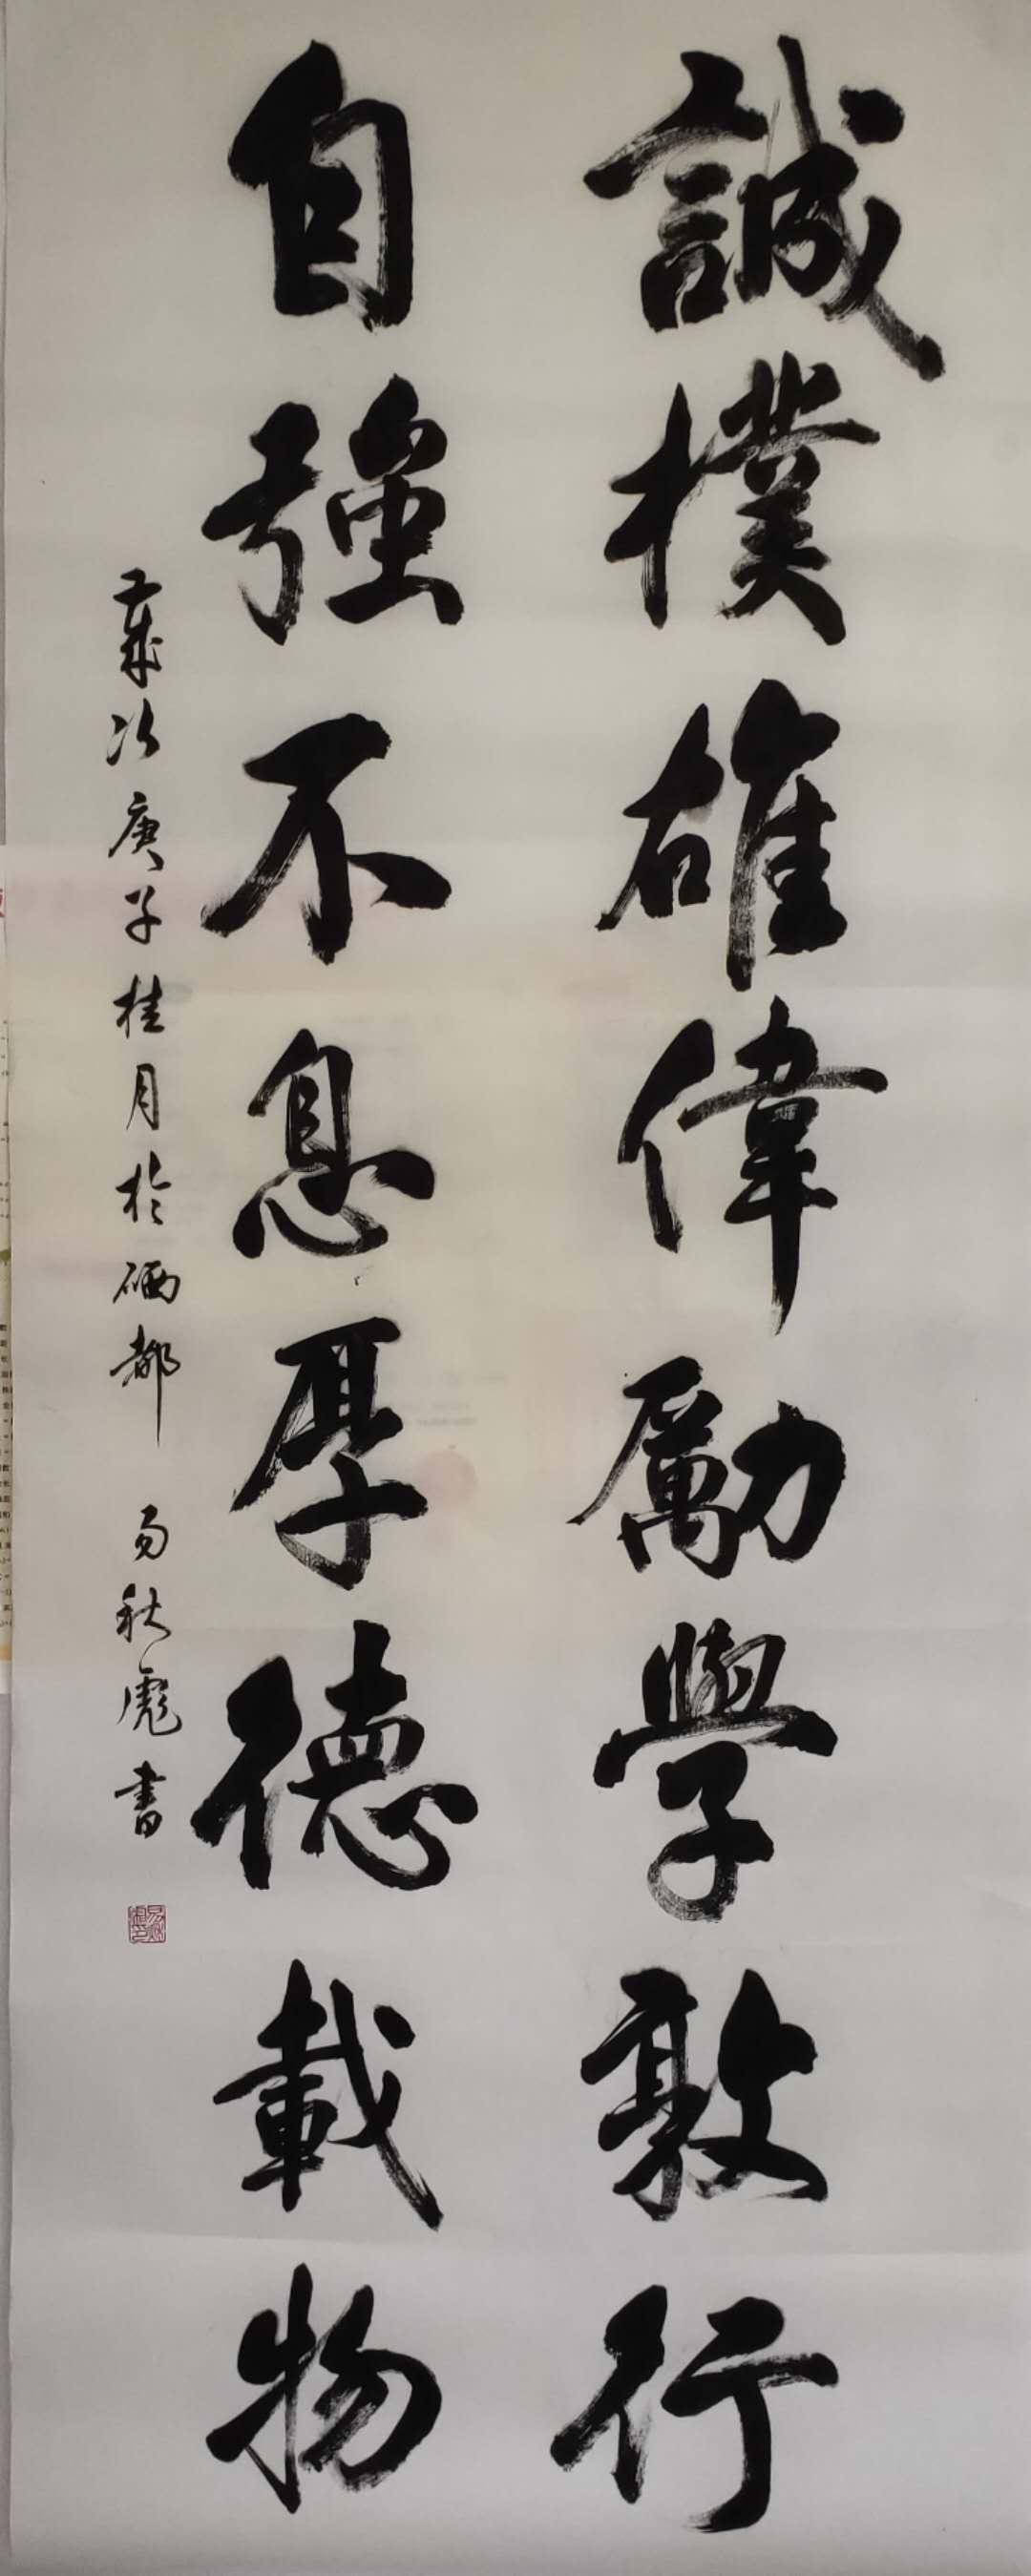 誠樸雄偉勵學敦行
自強不息厚德載物
歲次庚子桂月於硒都 易秋彪書